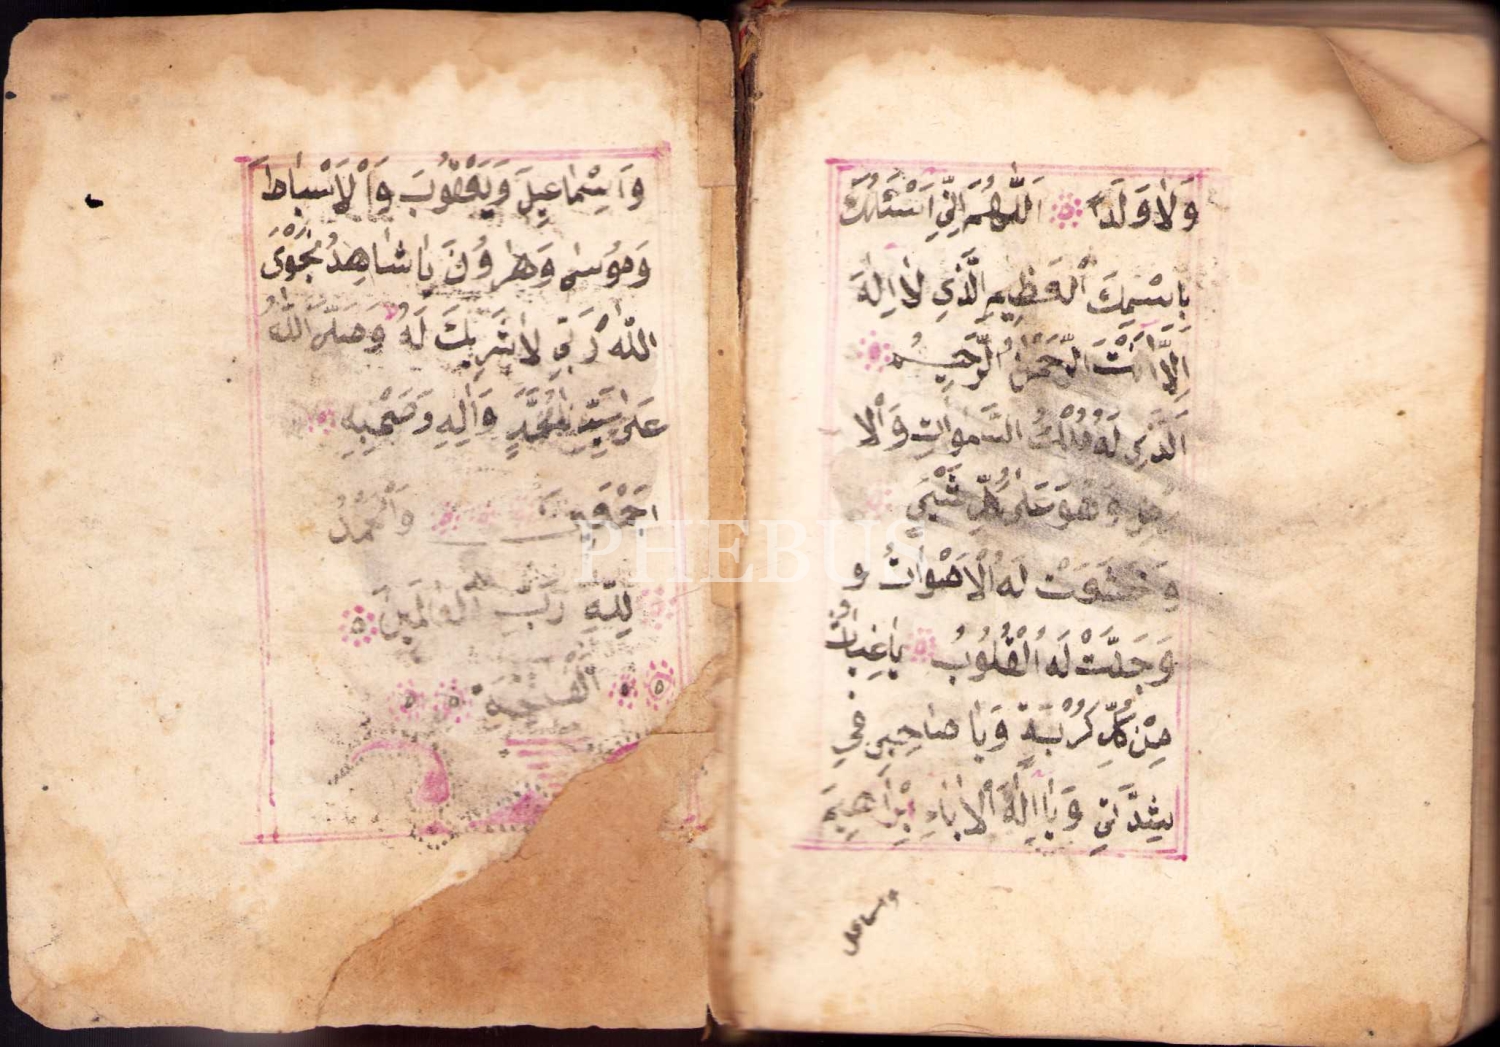 وَلَا وَلَدًا اَللّٰهُمَّ اِنِّي اَسْئَلُكَ
بِاسْمِكَ الْعَظِيمِ الَّذِي لَا اِلٰهَ
اِلَّا اَنْتَ الرَّحْمٰنُ الرَّحِيمُ
اَلَّذِي لَهُ مُلْكُ السَّمٰوَاتِ وَالْاَ
وَهُوَ عَلٰى كُلِّ شَيْئٍ
وَخَشَعَتْ لَهُ الْاَصْوَاتُ وَ
وَجَلَتْ لَهُ الْقُلُوبُ يَا غِيَاثِي
مِنْ كُلِّ كُرْبَةٍ وَيَا صَاحِبِي فِي
شِدَّتِي وَيَا اِلٰهَ الْاٰبَاءِ اِبْرَاهِيمَ
واسماعيل
وَاِسْمَاعِيلَ وَيَعْقُوبَ وَالْاَسْبَاطَ
وَمُوسٰى وَهٰرُونَ يَا شَاهِدُ نَجْوٰى
اللّٰهُ رَبِّي لَا شَرِيكَ لَهُ وَصَلَّى اللّٰهُ
عَلٰى سَيِّدِنَا مُحَمَّدٍ وَاٰلِهِ وَصَحْبِهِ
اَجْمَعِينَ وَالْحَمْدُ
لِلّٰهِ رَبِّ الْعَالَمِينَ
الْفَاتِحَة
PHEBUS